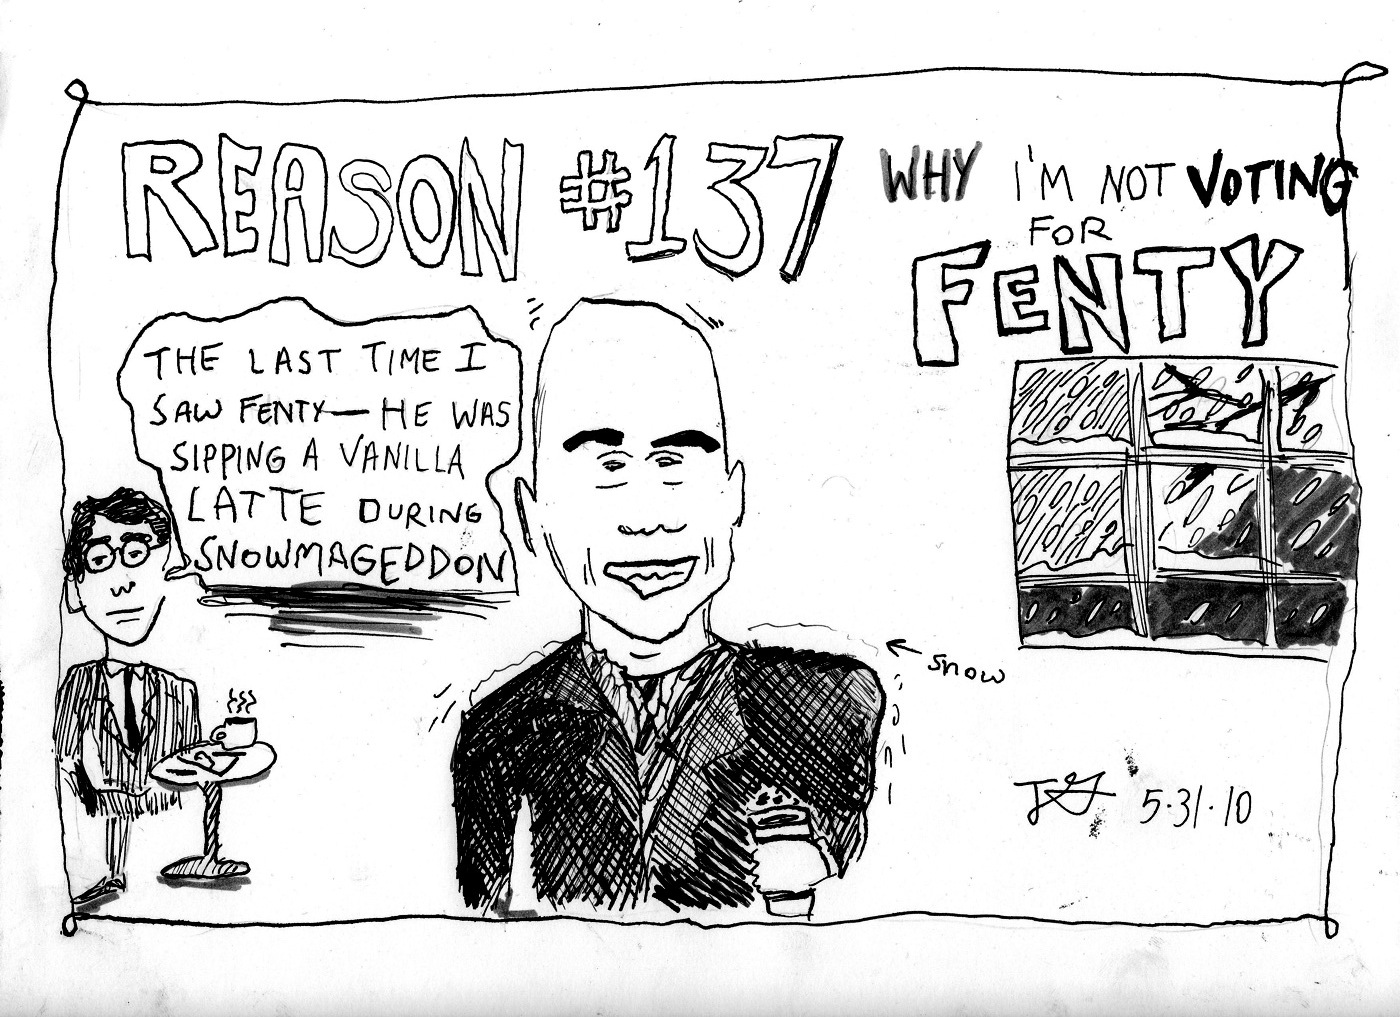 REASON #137 WHY I'M NOT VOTING
FOR
FENTY
THE LAST TIME I
SAW FENTY— HE WAS
SIPPING A VANILLA
LATTE DURING
SNOWMAGEDDON
SNOW
5·31·10